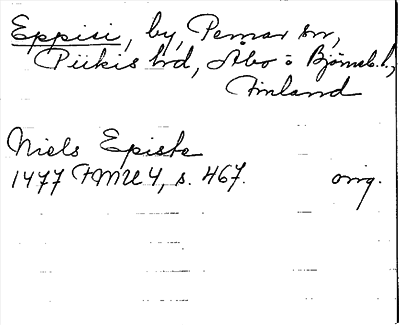 Eppisi, by, Pemar sn,
Piikis hd, Åbo o Björneb. l.,
Finland
Niels Episte
1477 FMU 4, s. 467. orig.